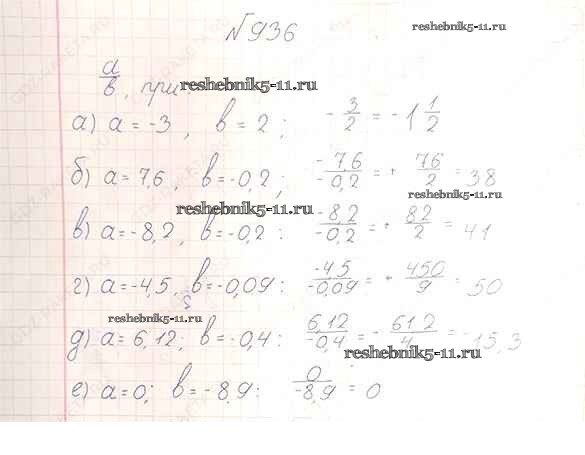 №936
reshebnik5-11.ru
a/в, при
reshebnik5-11.ru
а) a = -3, в = 2; -3/2 = -1 1/2
б) a = 7,6, в = -0,2; -7,6/-0,2 = + 76/2 = 38
reshebnik5-11.ru
reshebnik5-11.ru
в) a = -8,2, в = -0,2: -8,2/-0,2 = + 82/2 = 41
г) a = -4,5, в = -0,09: -4,5/-0,09 = + 450/9 = 50
reshebnik5-11.ru
д) a = 6,12; в = -0,4: 6,12/-0,4 = - 61,2/4 = -15,3
reshebnik5-11.ru
е) a = 0; в = -8,9: 0/-8,9 = 0